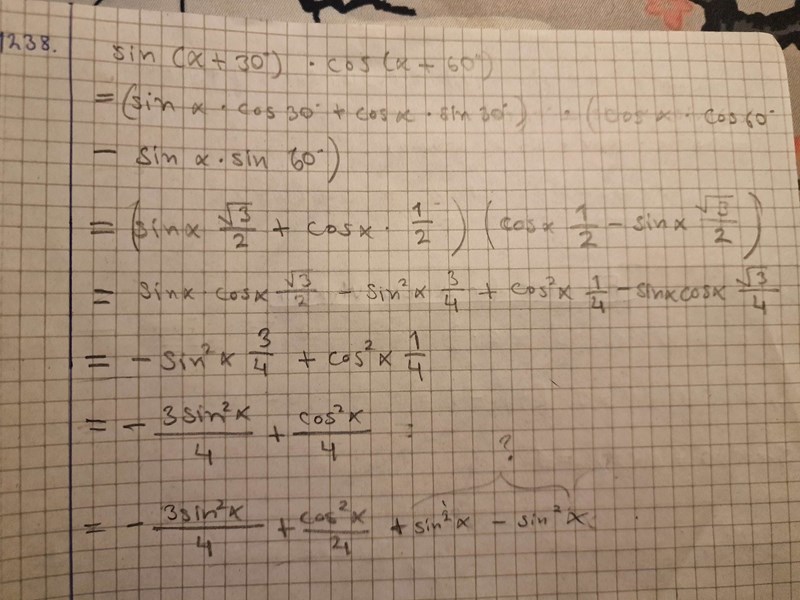 1238.
sin (x + 30°) · cos (x + 60°)
= (sin x · cos 30° + cos x · sin 30°) · (cos x · cos 60°
− sin x · sin 60°)
= (sin x √3/2 + cos x · 1/2) (cos x 1/2 − sin x √3/2)
= sin x · cos x √3/2 − sin²x 3/4 + cos²x 1/4 − sin x cos x √3/4
= − sin²x 3/4 + cos²x 1/4
= − 3 sin²x/4 + cos²x/4 =
?
= − 3 sin²x/4 + cos²x/4 + sin²x − sin²x